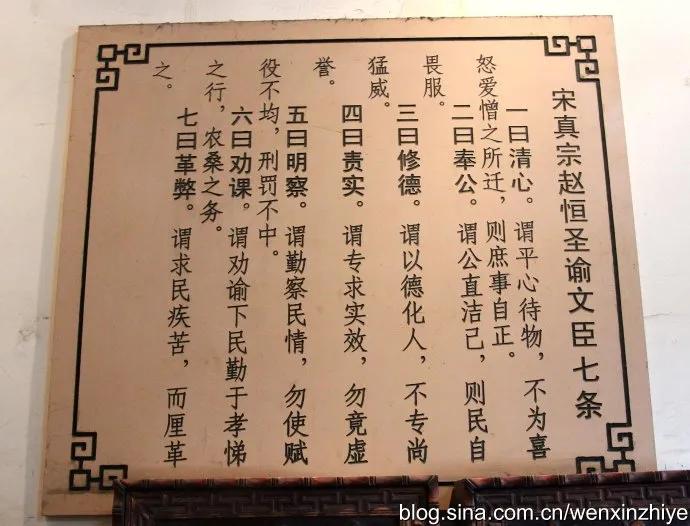 宋真宗赵恒圣谕文臣七条
一曰清心。谓平心待物，不为喜
怒爱憎之所迁，则庶事自正。
二曰奉公。谓公直洁己，则民自
畏服。
三曰修德。谓以德化人，不专尚
猛威。
四曰责实。谓专求实效，勿竟虚
誉。
五曰明察。谓勤察民情，勿使赋
役不均，刑罚不中。
六曰劝课。谓劝谕下民勤于孝悌
之行，农桑之务。
七曰革弊。谓求民疾苦，而厘革
之。
blog.sina.com.cn/wenxinzhiye